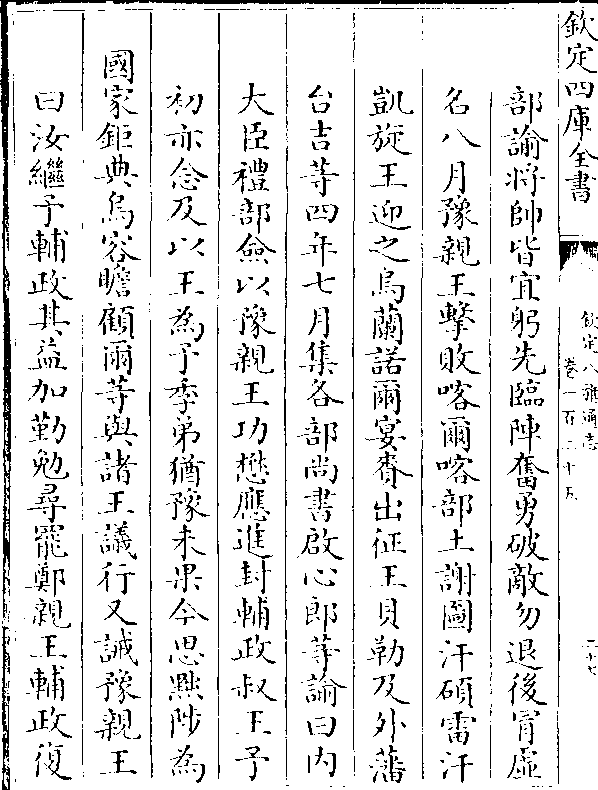 欽定四庫全書
欽定八旗通志
卷一百三十五
二十七
部諭將帥皆宜躬先臨陣奮勇破敵勿退後冐虛
名八月豫親王擊敗喀爾喀部土謝圖汗碩雷汗
凱旋王迎之烏蘭諾爾宴賚出征王貝勒及外藩
台吉等四年七月集各部尚書啟心郎等諭曰内
大臣禮部僉以豫親王功懋應進封輔政叔王予
初亦念及以王為予季弟猶豫未果今思黜陟為
國家鉅典烏容瞻顧爾等與諸王議行又誡豫親王
曰汝繼予輔政其益加勤勉尋罷鄭親王輔政復